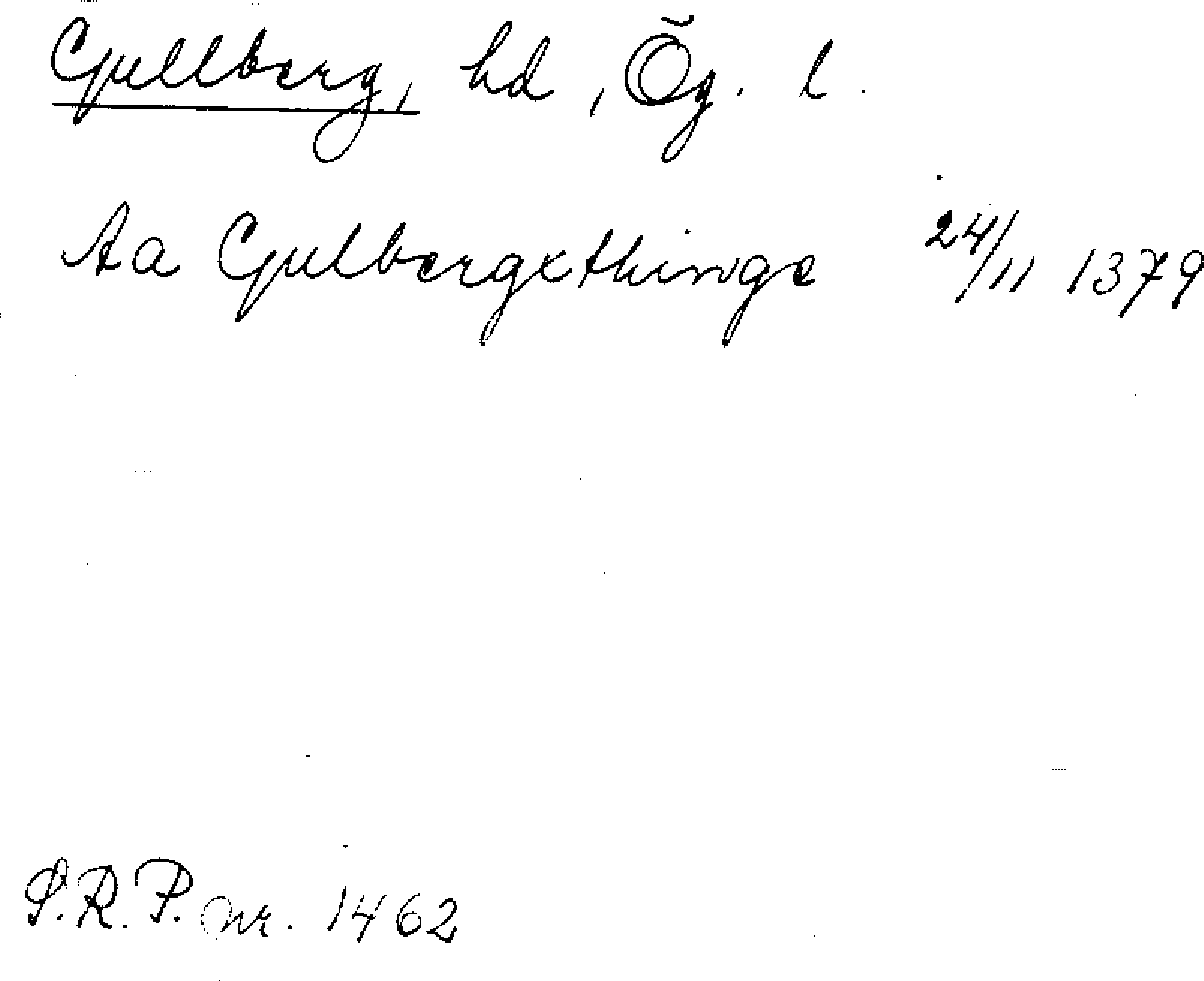 Gullberg, hd, Ög. l.
Aa Gulbergxthinge 24/11 1379
S.R.P. nr. 1462